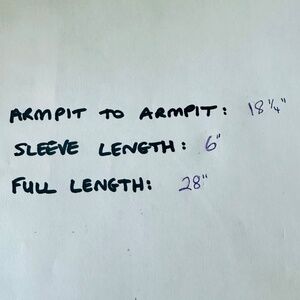 ARMPIT TO ARMPIT: 18 1/4"
SLEEVE LENGTH: 6"
FULL LENGTH: 28"